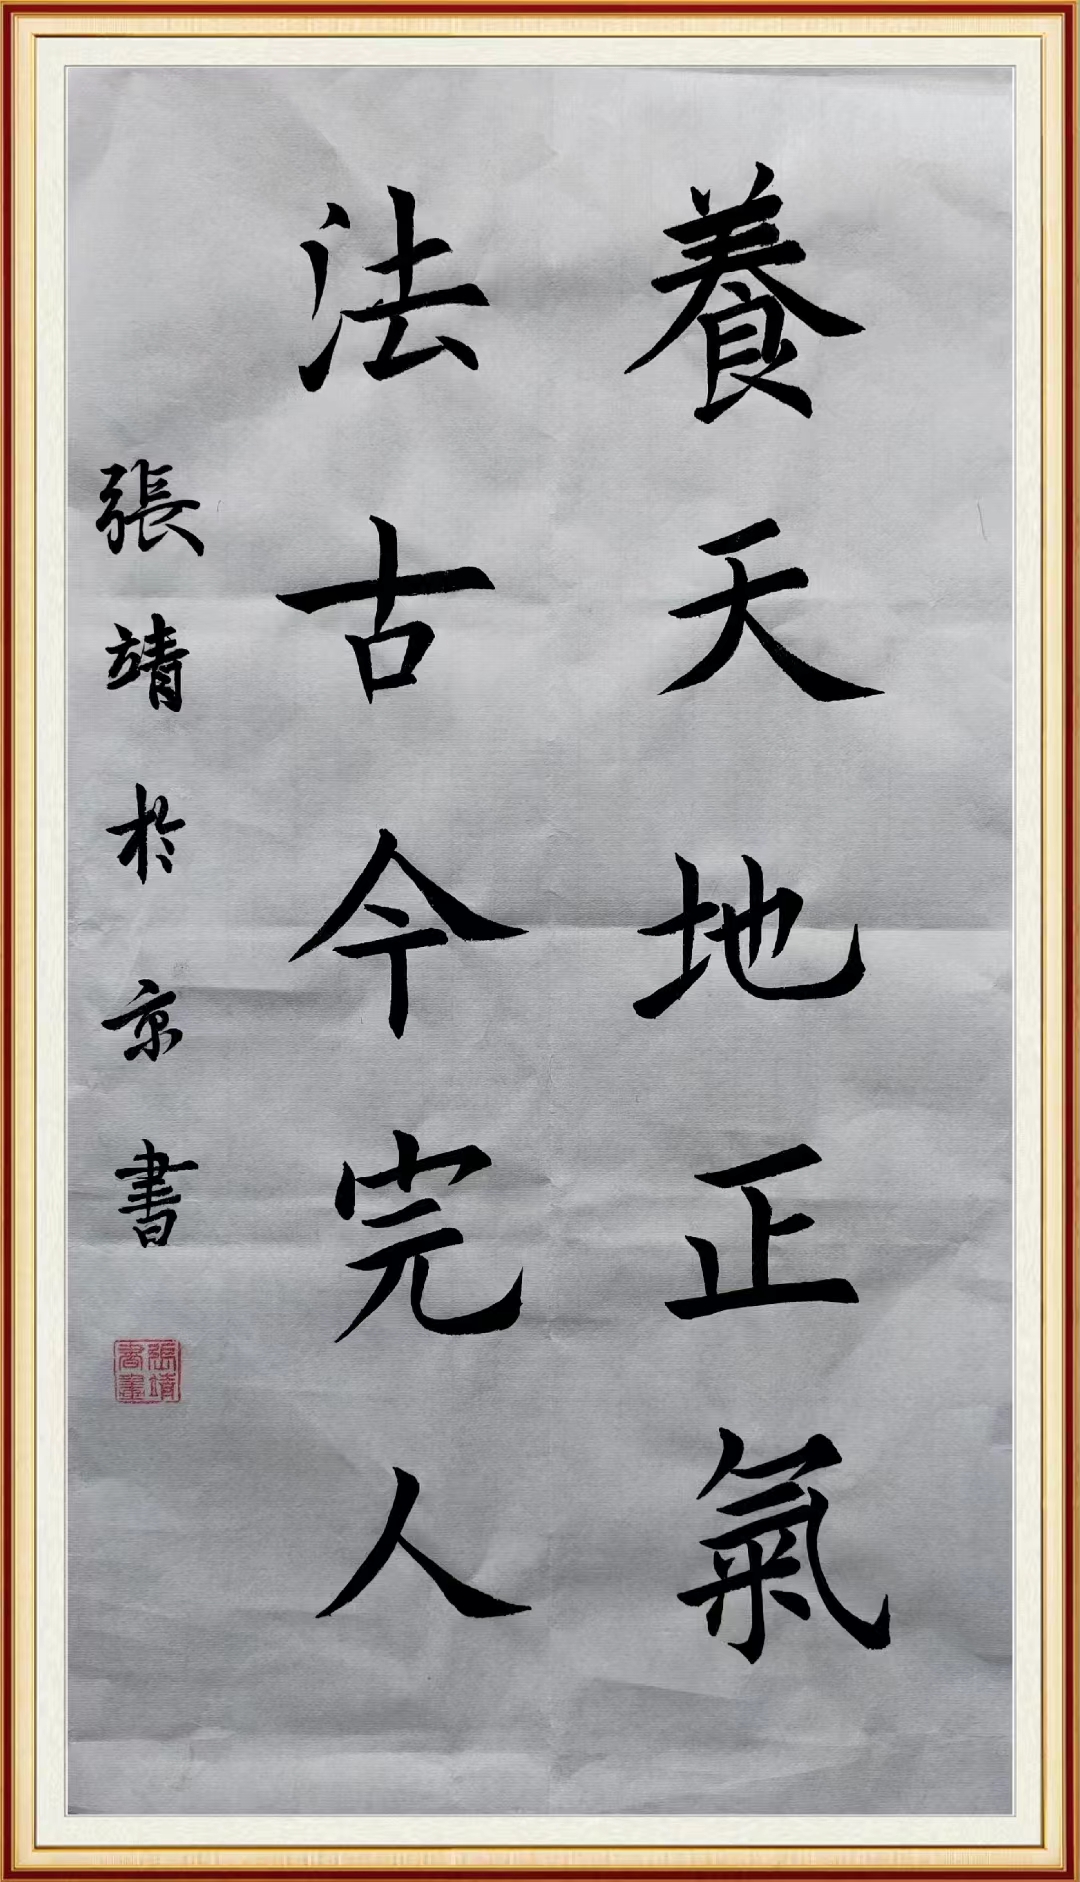 養天地正氣
法古今完人
張靖於京書
張靖書畫